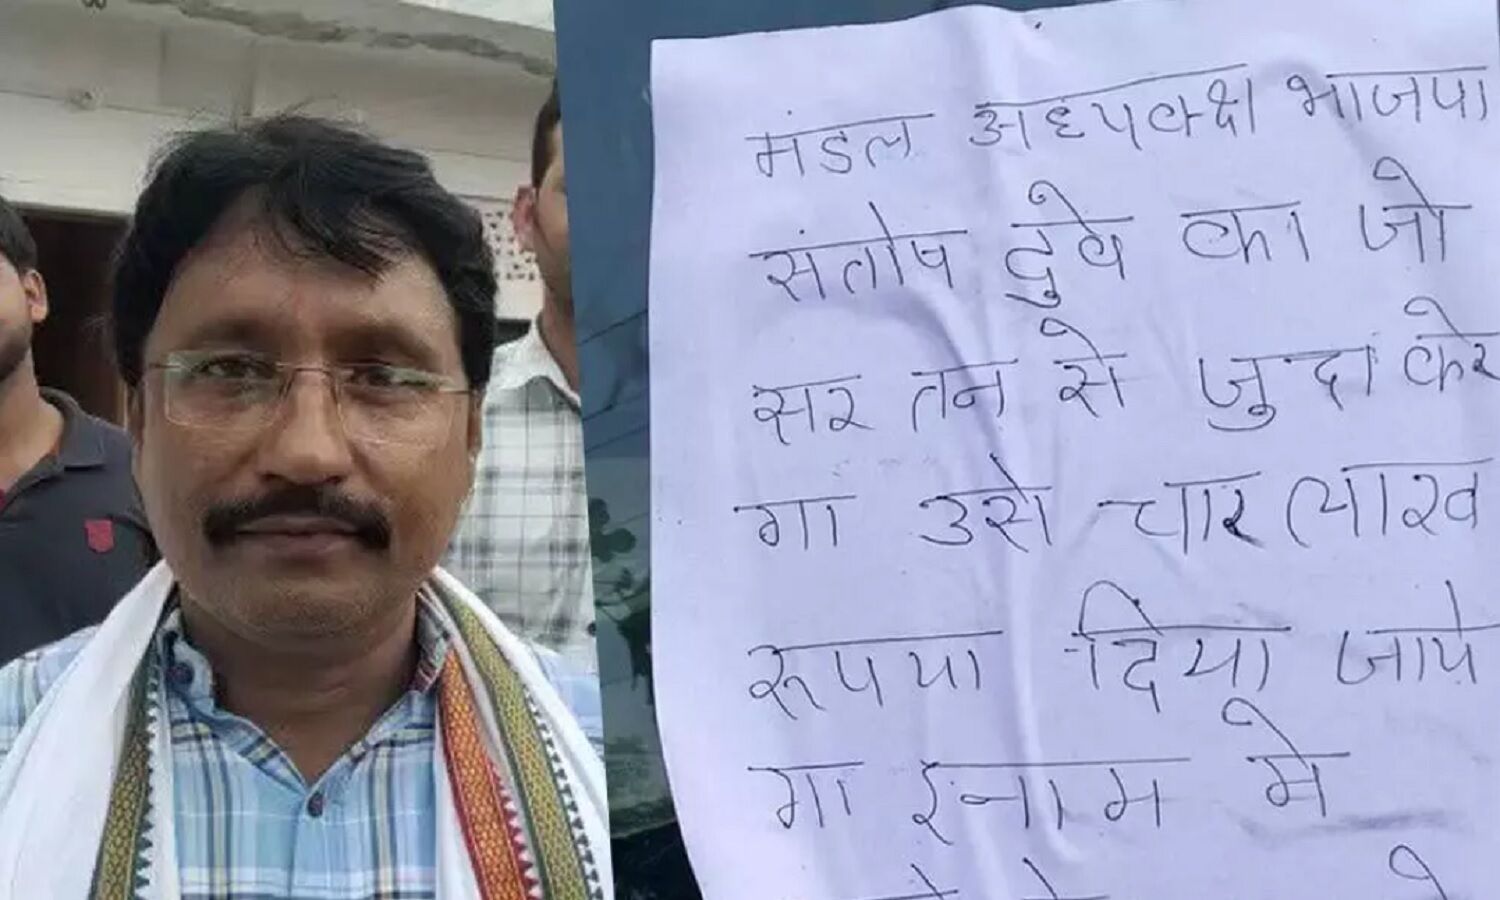 मंडल अध्यक्ष भाजपा
संतोष दुवे का जो
सर तन से जुदा करे
गा उसे चार लाख
रूपया दिया जाये
गा इनाम मे